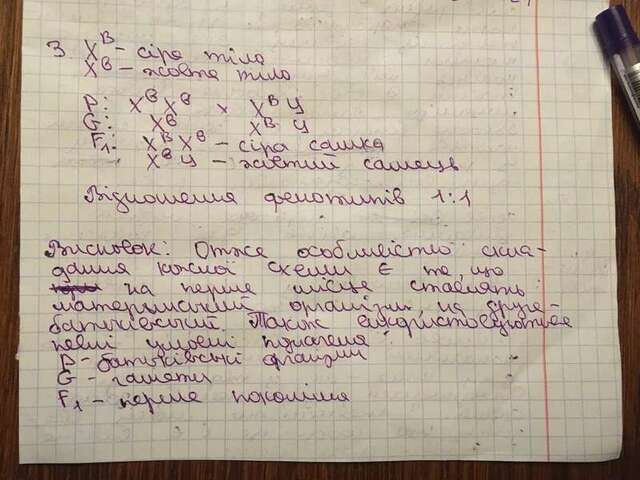 3. Xᴮ – сіре тіло
Xᵇ – жовте тіло
P: Xᵇ Xᵇ × Xᴮ У
G: Xᵇ Xᴮ У
F₁: Xᴮ Xᵇ – сіра самка
Xᵇ У – жовтий самець
Відношення фенотипів 1:1
Висновок: Отже особливістю скла-
дання кожної схеми є те, що
на перше місце ставлять
материнський організм, на друге –
батьківський. Також використовуються
певні умовні позначення
P – батьківські організми
G – гамети
F₁ – перше покоління